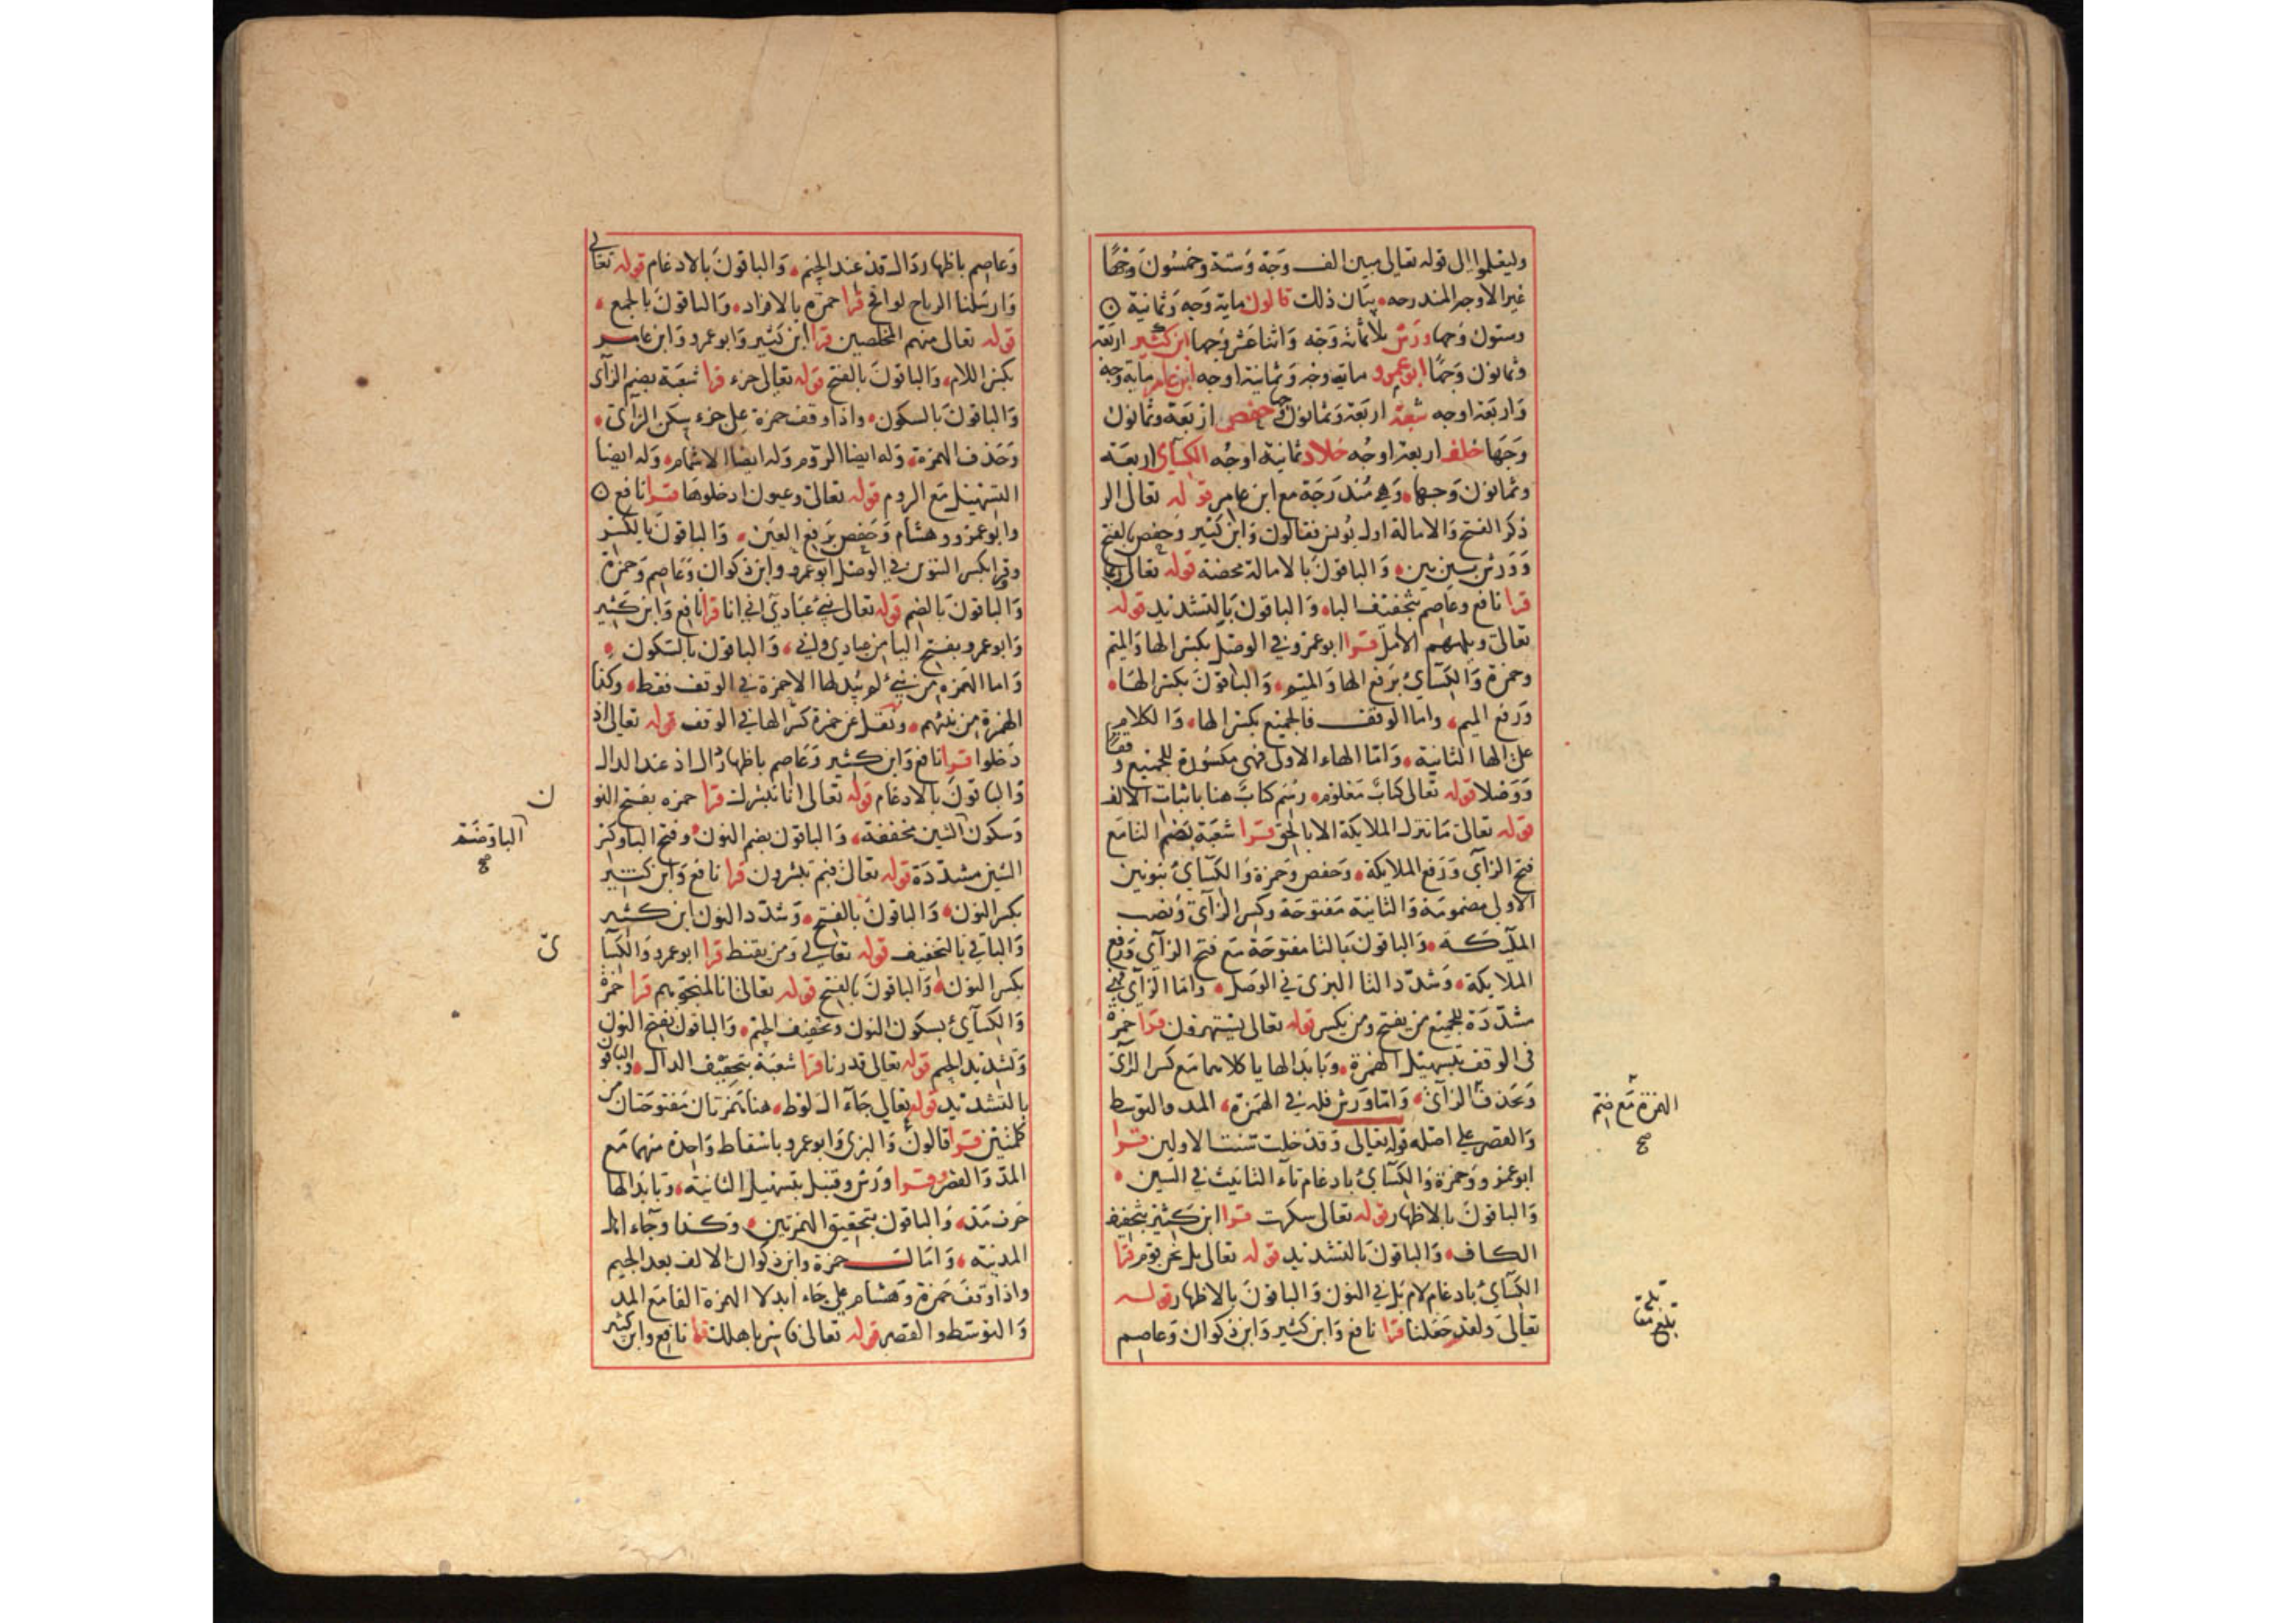 وليعلموا الى قوله تعالى مبين الف وجه وستة وخمسون وجها
غير الاوجه المندرجه بيان ذلك قالون مايه وجه وثمانية
وستون وجها ورش ثلاثمائة وجه واثنا عشر وجها ابن كثير اربعة
وثمانون وجها ابو عمرو مايه وجه وثمانية اوجه ابن عامر مايه وجه
واربعة اوجه شعبة اربعة وثمانون وجها حفص اربعة وثمانون
وجها خلف اربعة اوجه خلاد ثمانية اوجه الكسآي اربعة
وثمانون وجها وهي مندرجة مع ابن عامر قوله تعالى الر
ذكر الفتح والامالة اول يونس فقالون وابن كثير وحفص بالفتح
وورش بين بين والباقون بالامالة محضة قوله تعالى ربما
قرا نافع وعاصم بتخفيف البا والباقون بالتشديد قوله
تعالى ويلههم الامل قرا ابو عمرو في الوصل بكسر الها والميم
وحمزة والكسآي برفع الها والميم والباقون بكسر الها
ورفع الميم واما الوقف فالجميع بكسر الها والكلام
على الها الثانية واما الهاء الاولى فهي مكسورة للجميع وقفا
ووصلا قوله تعالى كتاب معلوم رسم كتاب هنا باثبات الالف
قوله تعالى ما تنزل الملايكة الا بالحق قرا شعبة بضم التا مع
فتح الزآي ورفع الملايكة وحفص وحمزة والكسآي بنونين
الاولى مضمومة والثانية مفتوحة وكسر الزآي ونصب
الملآيكة والباقون بالتا مفتوحة مع فتح الزآي ورفع
الملايكة وشدد التا البزي في الوصل واما الزآي فهي
مشددة للجميع من يفتح ومن يكسر قوله تعالى يستهزؤن قرا حمزة
في الوقف بتسهيل الهمزة وبابدالها يا كلاهما مع كسر الزآي
وبحذف الزآي واما ورش فله في الهمزة المد والتوسط
والقصر على اصله قوله تعالى وقد خلت سنت الاولين قرا
ابو عمرو وحمزة والكسآي بادغام تآء التانيث في السين
والباقون بالاظهار قوله تعالى سكرت قرا ابن كثير بتخفيف
الكاف والباقون بالتشديد قوله تعالى بل نحن قوم قرا
الكسآي بادغام لام بل في النون والباقون بالاظهار قوله
تعالى ولقد جعلنا قرا نافع وابن كثير وابن ذكوان وعاصم
الهمزة مع ضم
صح
بلغ مقابلة
وعاصم باظهار دال قد عند الجيم والباقون بالادغام قوله تعالى
وارسلنا الرياح لواقح قرا حمزة بالافراد والباقون بالجمع
قوله تعالى منهم المخلصين قرا ابن كثير وابو عمرو وابن عامر
بكسر اللام والباقون بالفتح قوله تعالى جزء قرا شعبة بضم الزآي
والباقون بالسكون واذا وقف حمزة على جزء سكن الزآي
وحذف الهمزة وله ايضا الروم وله ايضا الاشمام وله ايضا
التسهيل مع الروم قوله تعالى وعيون ادخلوها قرا نافع
وابو عمرو وهشام وحفص برفع العين والباقون بالكسر
وقرا بكسر التنوين في الوصل ابو عمرو وابن ذكوان وعاصم وحمزة
والباقون بالضم قوله تعالى نبئ عبادي اني انا قرا نافع وابن كثير
وابو عمرو بفتح اليا من عبادي واني والباقون بالسكون
واما الهمزه من نبئ لم يبدلها الا حمزة في الوقف فقط وكذا
الهمزة من نبئهم ونقل عن حمزة كسر الها في الوقف قوله تعالى اذ
دخلوا قرا نافع وابن كثير وعاصم باظهار ذال اذ عند الدال
والباقون بالادغام قوله تعالى انا نبشرك قرا حمزه بفتح النو
ن
وسكون البا وضم
صح
الشين مخففة والباقون بضم النون وفتح البا وكسر
الشين مشددة قوله تعالى فبم تبشرون قرا نافع وابن كثير
بكسر النون والباقون بالفتح وشدد النون ابن كثير
والباقي بالتخفيف قوله تعالى ومن يقنط قرا ابو عمرو والكسآ
ئ
بكسر النون والباقون بالفتح قوله تعالى انا لمنجوهم قرا حمزة
والكسآي بسكون النون وتخفيف الجيم والباقون بفتح النون
وتشديد الجيم قوله تعالى قدرنا قرا شعبة بتخفيف الدال والباقون
بالتشديد قوله تعالى جآء ال لوط هنا همزتان مفتوحتان من
كلمتين قرا قالون والبزي وابو عمرو باسقاط واحدة منهما مع
المد والقصر وقرا ورش وقنبل بتسهيل الثانية وبابدالها
حرف مد والباقون بتحقيق الهمزتين وكذا وجآء اهل
المدينة وامال حمزة وابن ذكوان الالف بعد الجيم
واذا وقف حمزة وهشام على جاء ابدلا الهمزة الفا مع المد
والتوسط والقصر قوله تعالى فاسر باهلك قرا نافع وابن كثير